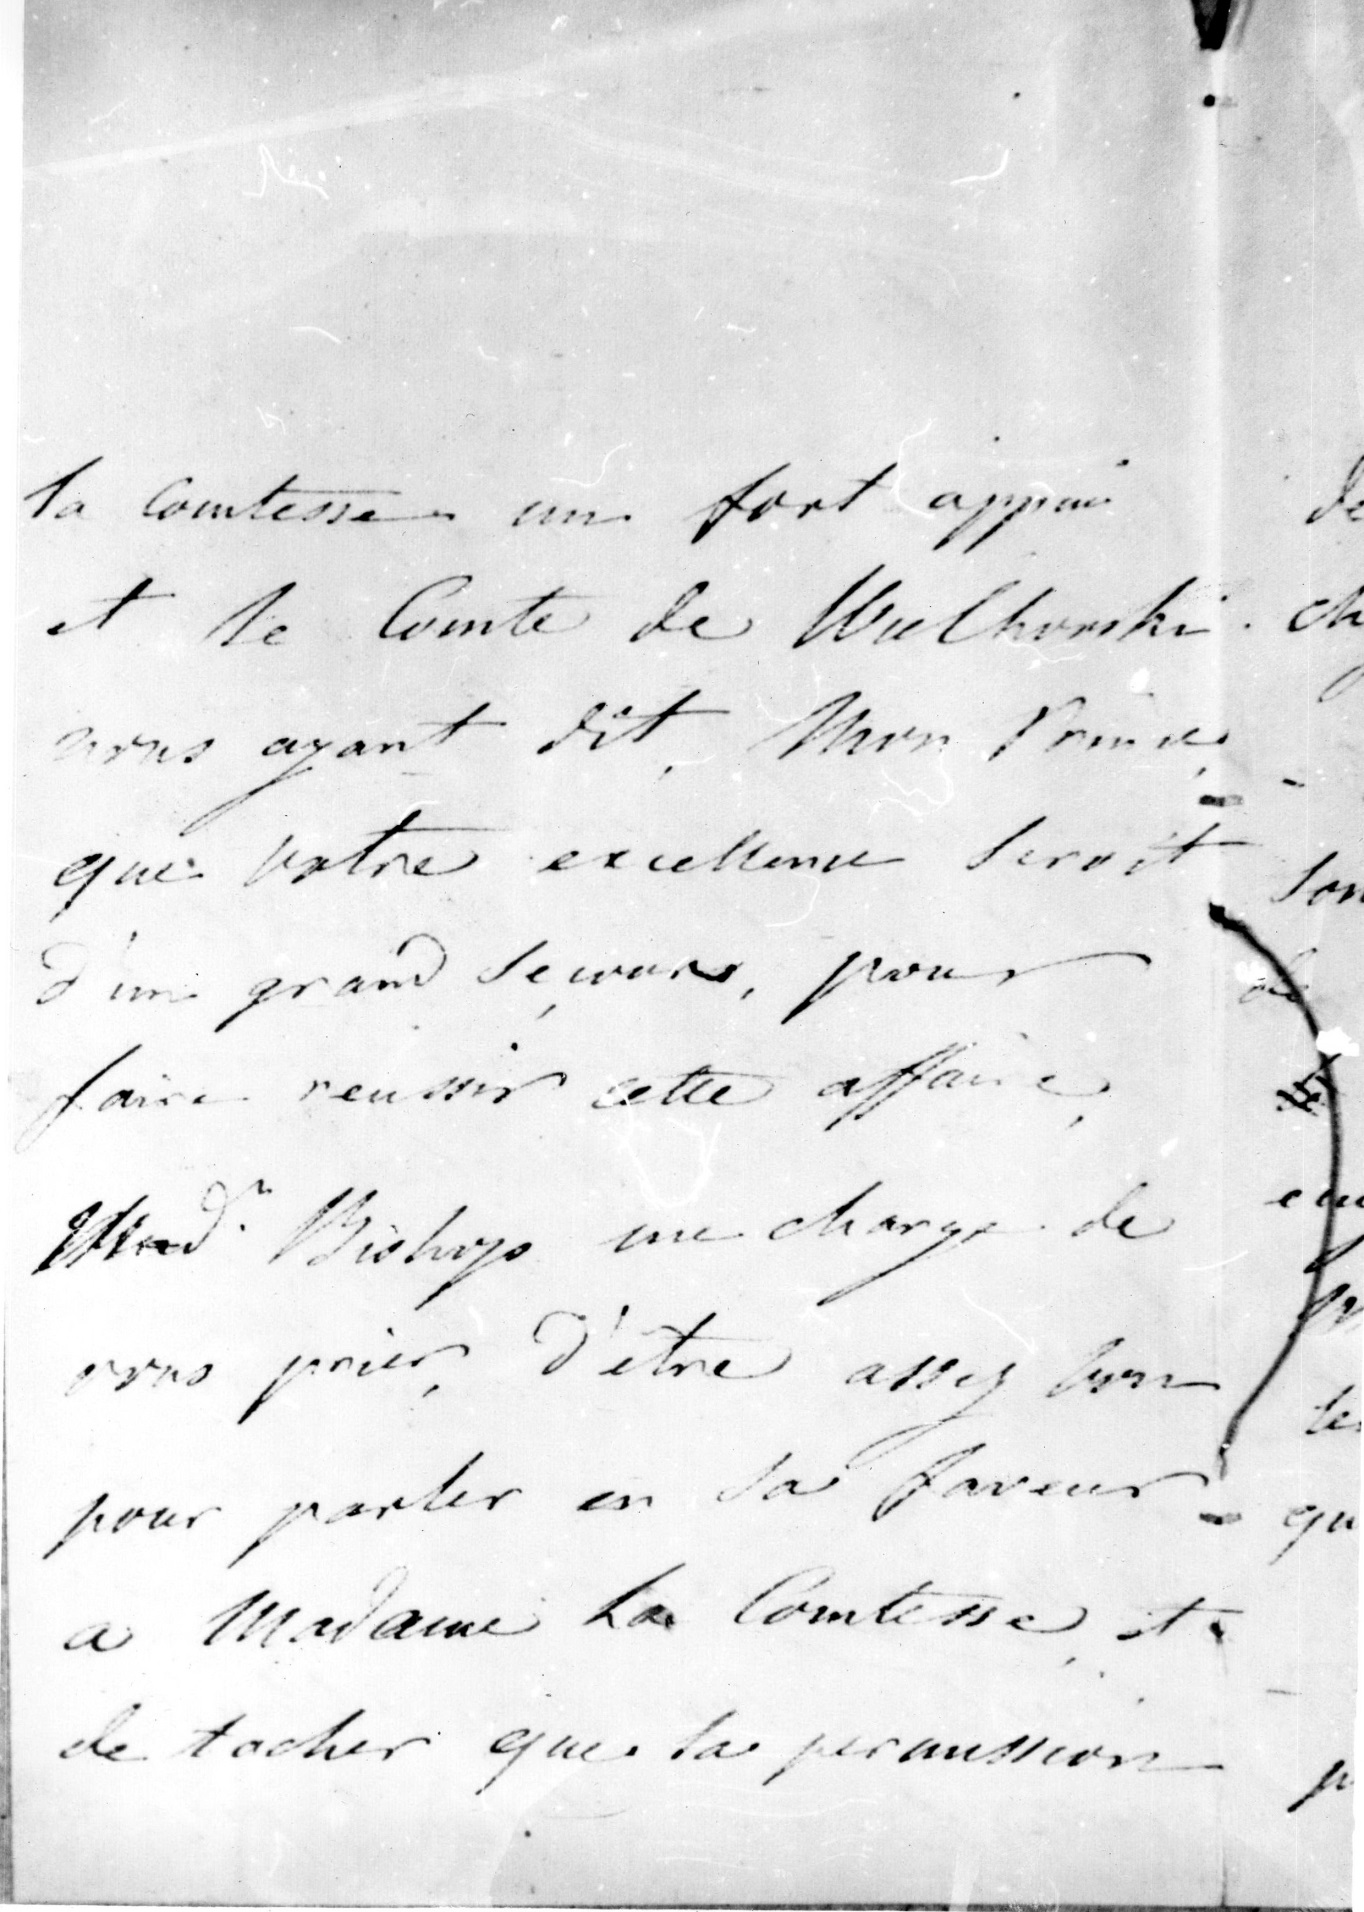 la Comtesse un fort appui
et le Comte de Wielhorski
nous ayant dit, Mon Prince,
que votre excellence seroit
d'un grand secours, pour
faire reussir cette affaire,
Mad.e Bishop me charge de
vous prier, d'être assez bon
pour parler en sa faveur
a Madame la Comtesse, et
de tacher que la permission